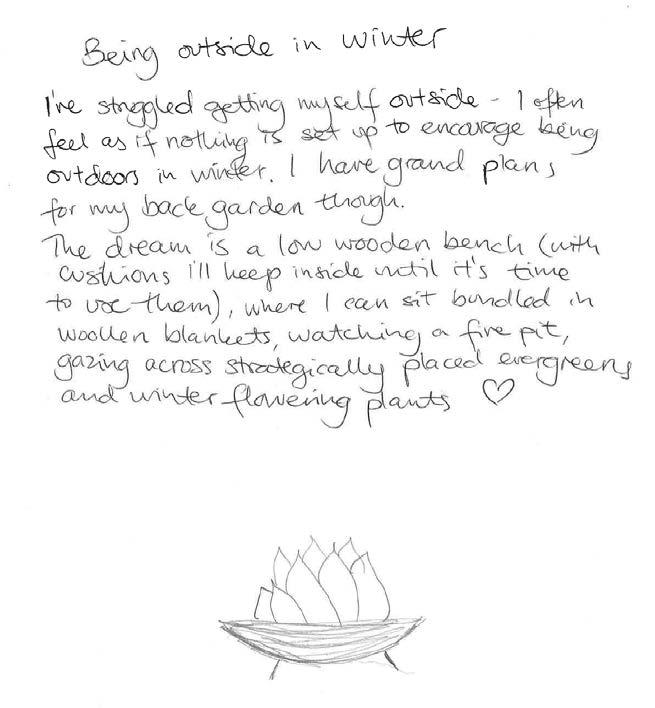 Being outside in winter
I've struggled getting myself outside - I often
feel as if nothing is set up to encourage being
outdoors in winter. I have grand plans
for my back garden though.
The dream is a low wooden bench (with
cushions I'll keep inside until it's time
to use them), where I can sit bundled in
woollen blankets, watching a fire pit,
gazing across strategically placed evergreens
and winter flowering plants ♡